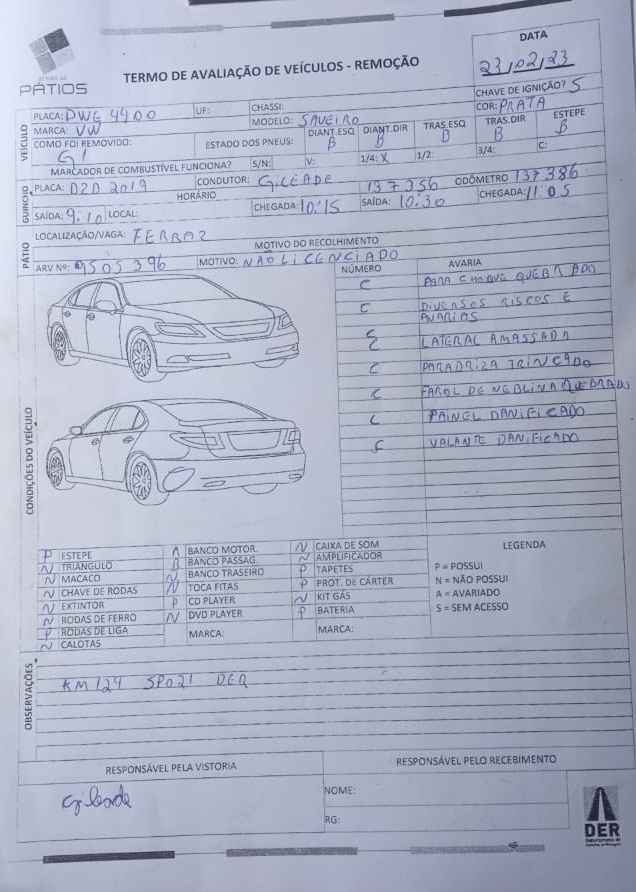 PÁTIOS
TERMO DE AVALIAÇÃO DE VEÍCULOS - REMOÇÃO
DATA
23/02/23
CHAVE DE IGNIÇÃO? S
VEÍCULO
PLACA: DWG 4400 UF: CHASSI: COR: PRATA
MARCA: VW MODELO: SAVEIRO
COMO FOI REMOVIDO: G1 ESTADO DOS PNEUS: DIANT.ESQ B DIANT.DIR B TRAS.ESQ B TRAS.DIR B ESTEPE B
MARCADOR DE COMBUSTÍVEL FUNCIONA? S/N: V: 1/4: X 1/2: 3/4: C:
GUINCHO
PLACA: DZD 2019 CONDUTOR: GILEADE 137356 ODÔMETRO 137386
HORÁRIO
SAÍDA: 9:10 LOCAL: CHEGADA: 10:15 SAÍDA: 10:30 CHEGADA: 11:05
PÁTIO
LOCALIZAÇÃO/VAGA: FERRAZ
MOTIVO DO RECOLHIMENTO
ARV Nº: 9505396 MOTIVO: NÃO LICENCIADO
CONDIÇÕES DO VEÍCULO
NÚMERO AVARIA
C PARA CHOQUE QUEBRADO
C DIVERSOS RISCOS E
AVARIAS
C
C LATERAL AMASSADA
C PARADRIZA TRINCADO
C FAROL DE NEBLINA QUEBRADO
C PAINEL DANIFICADO
C VALANTE DANIFICADO
P ESTEPE
N TRIANGULO
N MACACO
N CHAVE DE RODAS
N EXTINTOR
N RODAS DE FERRO
P RODAS DE LIGA
N CALOTAS
A BANCO MOTOR.
B BANCO PASSAG.
N BANCO TRASEIRO
N TOCA FITAS
P CD PLAYER
N DVD PLAYER
MARCA:
N CAIXA DE SOM
N AMPLIFICADOR
P TAPETES
P PROT. DE CÁRTER
N KIT GÁS
P BATERIA
MARCA:
LEGENDA
P = POSSUI
N = NÃO POSSUI
A = AVARIADO
S = SEM ACESSO
OBSERVAÇÕES
KM 124 SP021 DER
RESPONSÁVEL PELA VISTORIA
Gileade
RESPONSÁVEL PELO RECEBIMENTO
NOME:
RG:
DER